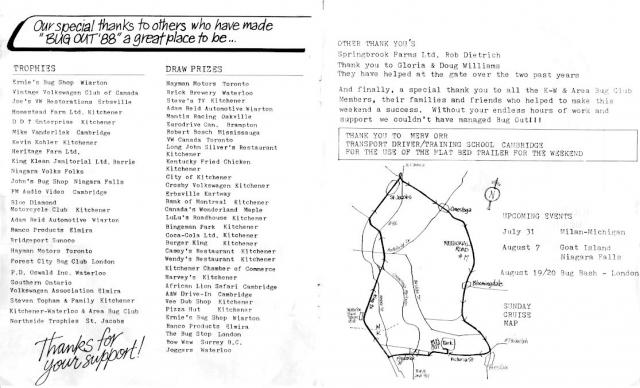 Our special thanks to others who have made
"BUG OUT '88" a great place to be...
TROPHIES
Ernie's Bug Shop Wiarton
Vintage Volkswagen Club of Canada
Joe's VW Restorations Erbsville
Homestead Farm Ltd. Kitchener
D D T Enterprises Kitchener
Mike Vanderlick Cambridge
Kevin Kohler Kitchener
Heritage Farm Ltd.
King Klean Janitorial Ltd, Barrie
Niagara Volks Folks
John's Bug Shop Niagara Falls
FM Audio Video Cambridge
Blue Diamond
Motorcycle Club Kitchener
Adam Reid Automotive Wiarton
Ranco Products Elmira
Bridgeport Sunoco
Hayman Motors Toronto
Forest City Bug Club London
P.D. Oswald Inc. Waterloo
Southern Ontario
Volkswagen Association Elmira
Steven Topham & Family Kitchener
Kitchener-Waterloo & Area Bug Club
Northside Trophies St. Jacobs
Thanks for
your support!
DRAW PRIZES
Hayman Motors Toronto
Brick Brewery Waterloo
Steve's TV Kitchener
Adam Reid Automotive Wiarton
Mantis Racing Oakville
Eurodrive Can. Brampton
Robert Bosch Mississauga
VW Canada Toronto
Long John Silver's Restaurant
Kitchener
Kentucky Fried Chicken
Kitchener
City of Kitchener
Crosby Volkswagen Kitchener
Erbsville Kartway
Bank of Montreal Kitchener
Canada's Wonderland Maple
LuLu's Roadhouse Kitchener
Bingeman Park Kitchener
Coca-Cola Ltd. Kitchener
Burger King Kitchener
Camey's Restaurant Kitchener
Wendy's Restaurant Kitchener
Kitchener Chamber of Commerce
Harvey's Kitchener
African Lion Safari Cambridge
A&W Drive-In Cambridge
Vee Dub Shop Kitchener
Pizza Hut Kitchener
Ernie's Bug Shop Wiarton
Ranco Products Elmira
The Bug Stop London
Wow Wow Surrey B.C.
Joggers Waterloo
OTHER THANK YOU'S
Springbrook Farms Ltd. Rob Dietrich
Thank you to Gloria & Doug Williams
They have helped at the gate over the two past years
And finally, a special thank you to all the K-W & Area Bug Club
Members, their families and friends who helped to make this
weekend a success. Without your endless hours of work and
support we couldn't have managed Bug Out!!!
THANK YOU TO MERV ORR
TRANSPORT DRIVER/TRAINING SCHOOL CAMBRIDGE
FOR THE USE OF THE FLAT BED TRAILER FOR THE WEEKEND
St. Jacobs
Conestogo
N
REGIONAL
ROAD
# 17
Bloomingdale
Bridge
Park
Victoria St
UPCOMING EVENTS
July 31 Milan-Michigan
August 7 Goat Island
Niagara Falls
August 19/20 Bug Bash - London
SUNDAY
CRUISE
MAP